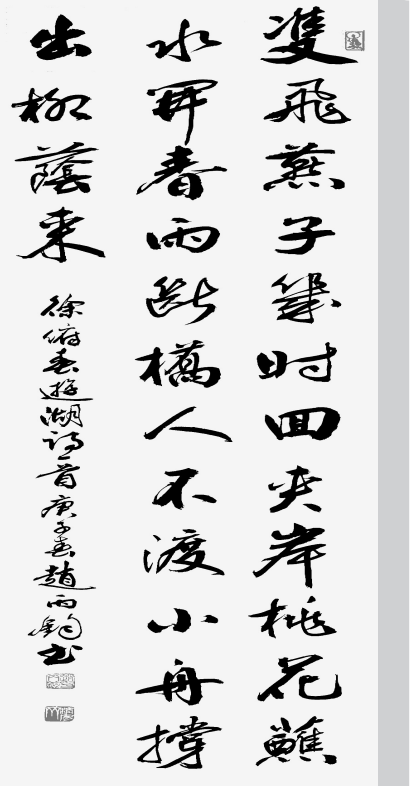 雙飛燕子幾時回夾岸桃花蘸
水開春雨斷橋人不渡小舟撐
出柳蔭來
徐俯春遊湖詩一首庚子春趙雨鈞書